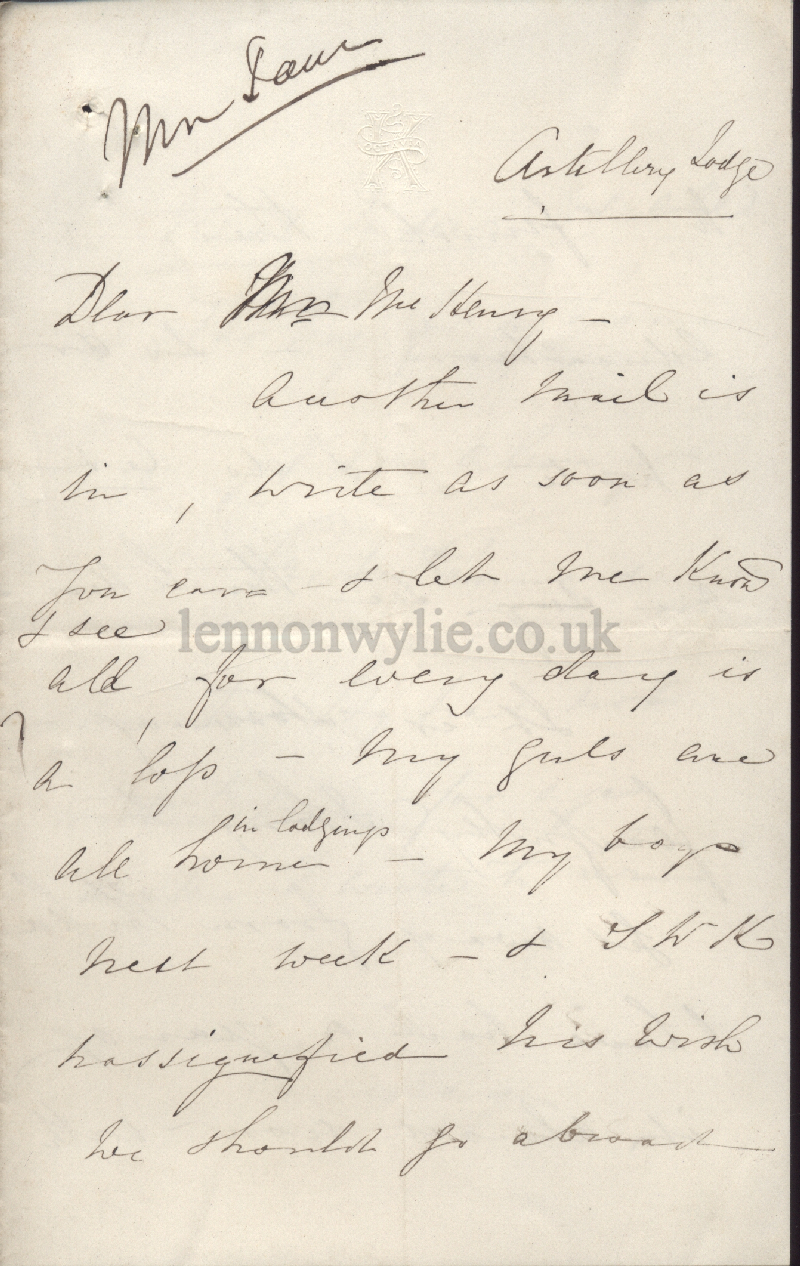 Artillery Lodge
Dear Mrs McHenry -
Another Mail is
in, write as soon as
You can - & let me Know
& see
all, for every day is
a loss - My girls are
in lodgings
all home - My boys
next week - & S W K
has signefied his Wish
We should go abroad
lennonwylie.co.uk